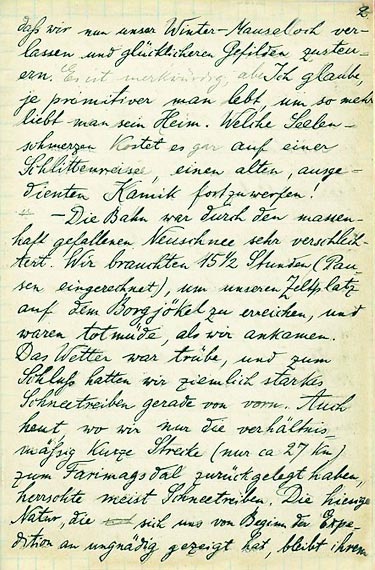 2
daß wir nun unser Winter-Mauseloch ver-
lassen und glücklicheren Gefilden zusteu-
ern. Es ist merkwürdig, aber Ich glaube,
je primitiver man lebt, um so mehr
liebt man sein Heim. Welche Seelen-
schmerzen kostet es gar auf einer
Schlittenreise, einen alten, ausge-
dienten Kamik fortzuwerfen!
– Die Bahn war durch den massen-
haft gefallenen Neuschnee sehr verschlech-
tert. Wir brauchten 15½ Stunden (Pau-
sen eingerechnet), um unseren Zeltplatz
auf dem Borgjökel zu erreichen, und
waren totmüde, als wir ankamen.
Das Wetter war trübe, und zum
Schluß hatten wir ziemlich starkes
Schneetreiben gerade von vorn. Auch
heut, wo wir nur die verhältnis-
mäßig kurze Strecke (nur ca 27 km)
zum Farimagsdal zurückgelegt haben,
herrschte meist Schneetreiben. Die hiesige
Natur, die sich uns von Beginn der Expe-
dition an ungnädig gezeigt hat, bleibt ihrem